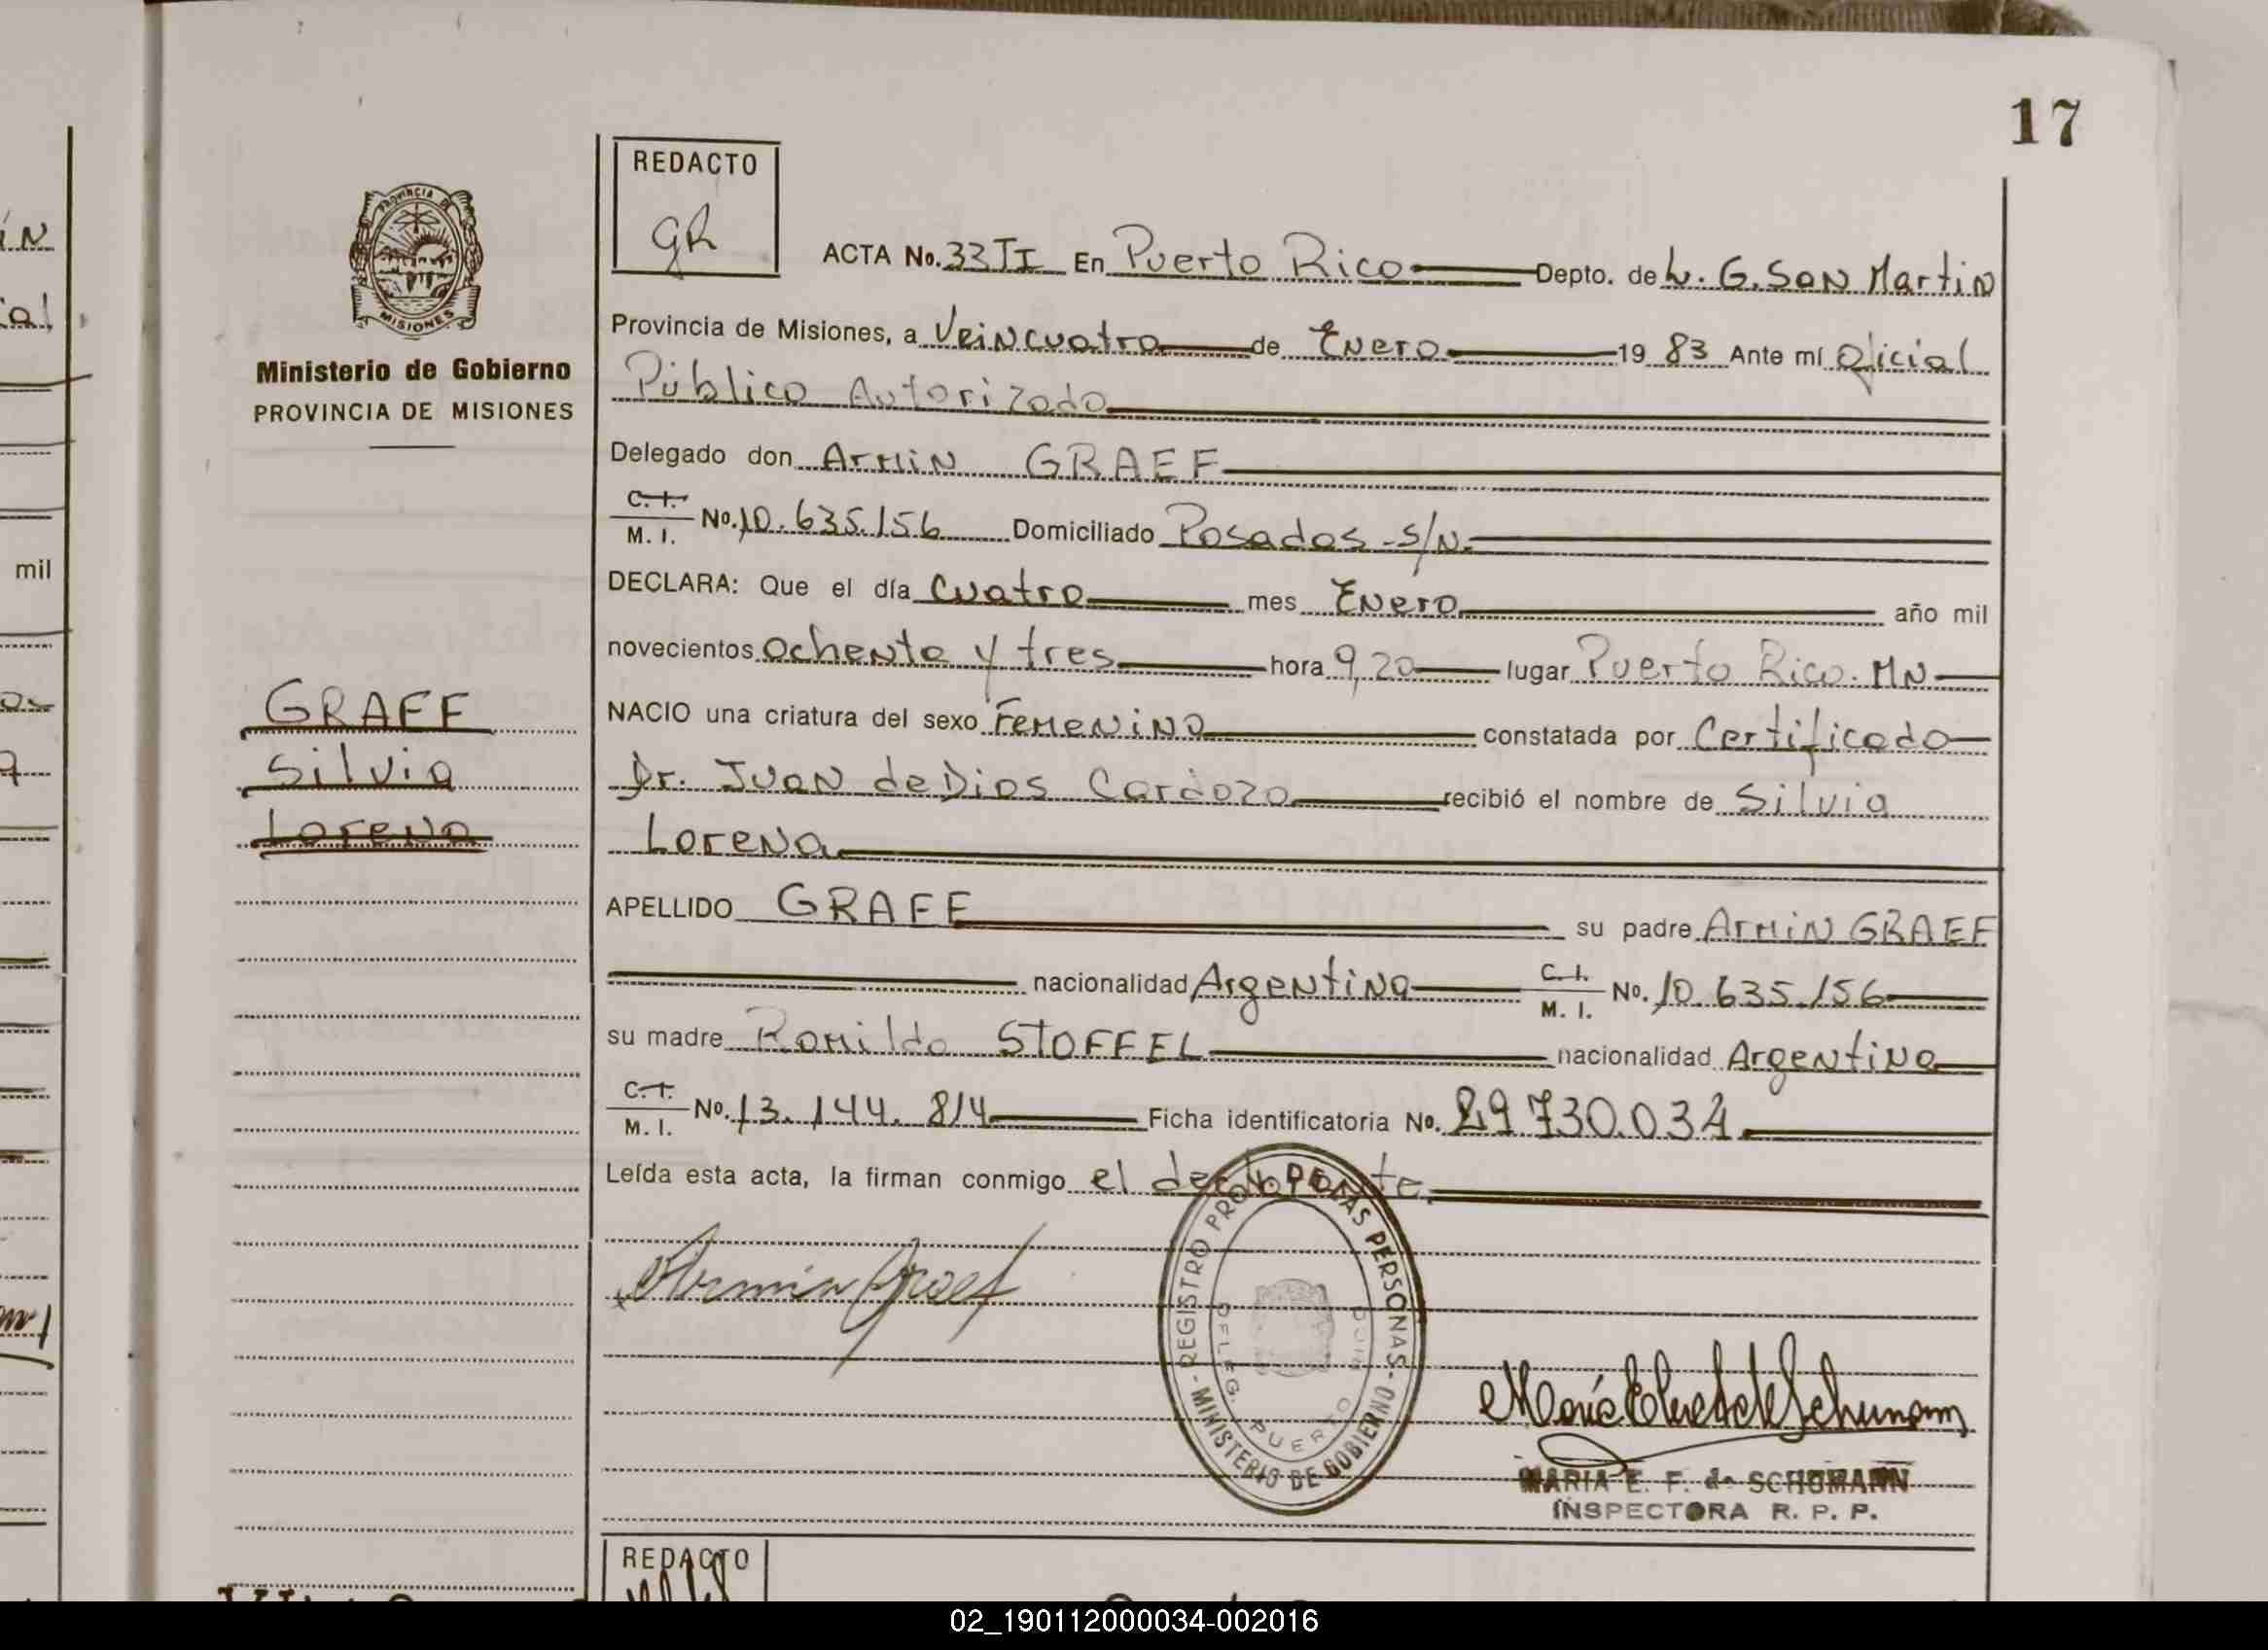 17
REDACTO
gR
PROVINCIA DE
MISIONES
Ministerio de Gobierno
PROVINCIA DE MISIONES
GRAEF
Silvia
Lorena
ACTA No. 33 TI En Puerto Rico Depto. de L. G. San Martin
Provincia de Misiones, a Veincuatro de Enero 19 83 Ante mí Oficial
Público Autorizado
Delegado don Armin GRAEF
C. I.
M. I. No. 10.635.156 Domiciliado Posadas - S/N.
DECLARA: Que el día Cuatro mes Enero año mil
novecientos Ochenta y tres hora 9,20 lugar Puerto Rico. MN
NACIO una criatura del sexo Femenino constatada por Certificado
Dr. Juan de Dios Cardozo recibió el nombre de Silvia
Lorena
APELLIDO GRAEF su padre Armin GRAEF
nacionalidad Argentina C. I. M. I. No. 10.635.156
su madre Romilda STOFFEL nacionalidad Argentina
C. I.
M. I. No. 13.144.814 Ficha identificatoria No. 29.730.034
Leída esta acta, la firman conmigo el declarante
Armin Graef
REGISTRO PROV. DE LAS PERSONAS
- MINISTERIO DE GOBIERNO -
PUERTO
MARIA E. F. de SCHUMANN
INSPECTORA R. P. P.
REDACTO
mil
02_190112000034-002016